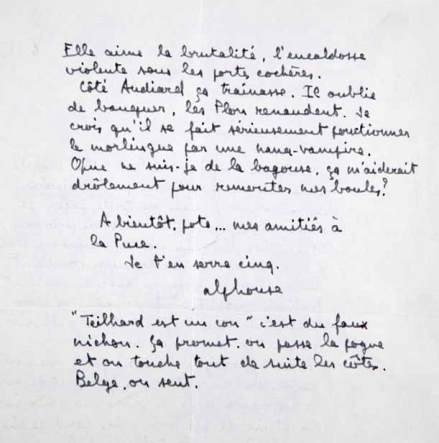 Elle aime la brutalité, l'encaldosse
violente sous les portes cochères.
Côté Audiard ça traînasse. Il oublie
de banquer, les Plon renaudent. Je
crois qu'il se fait sérieusement ponctionner
le morlingue par une nana-vampire.
Que ne suis-je de la bagouse, ça m'aiderait
drôlement pour remonter mes boules?
A bientôt, pote... mes amitiés à
la Puce.
Je t'en serre cinq.
alphonse
"Teilhard est un con" c'est du faux
nichon. Ça promet, on passe la pogne
et on touche tout de suite les côtes.
Belge, on sent.